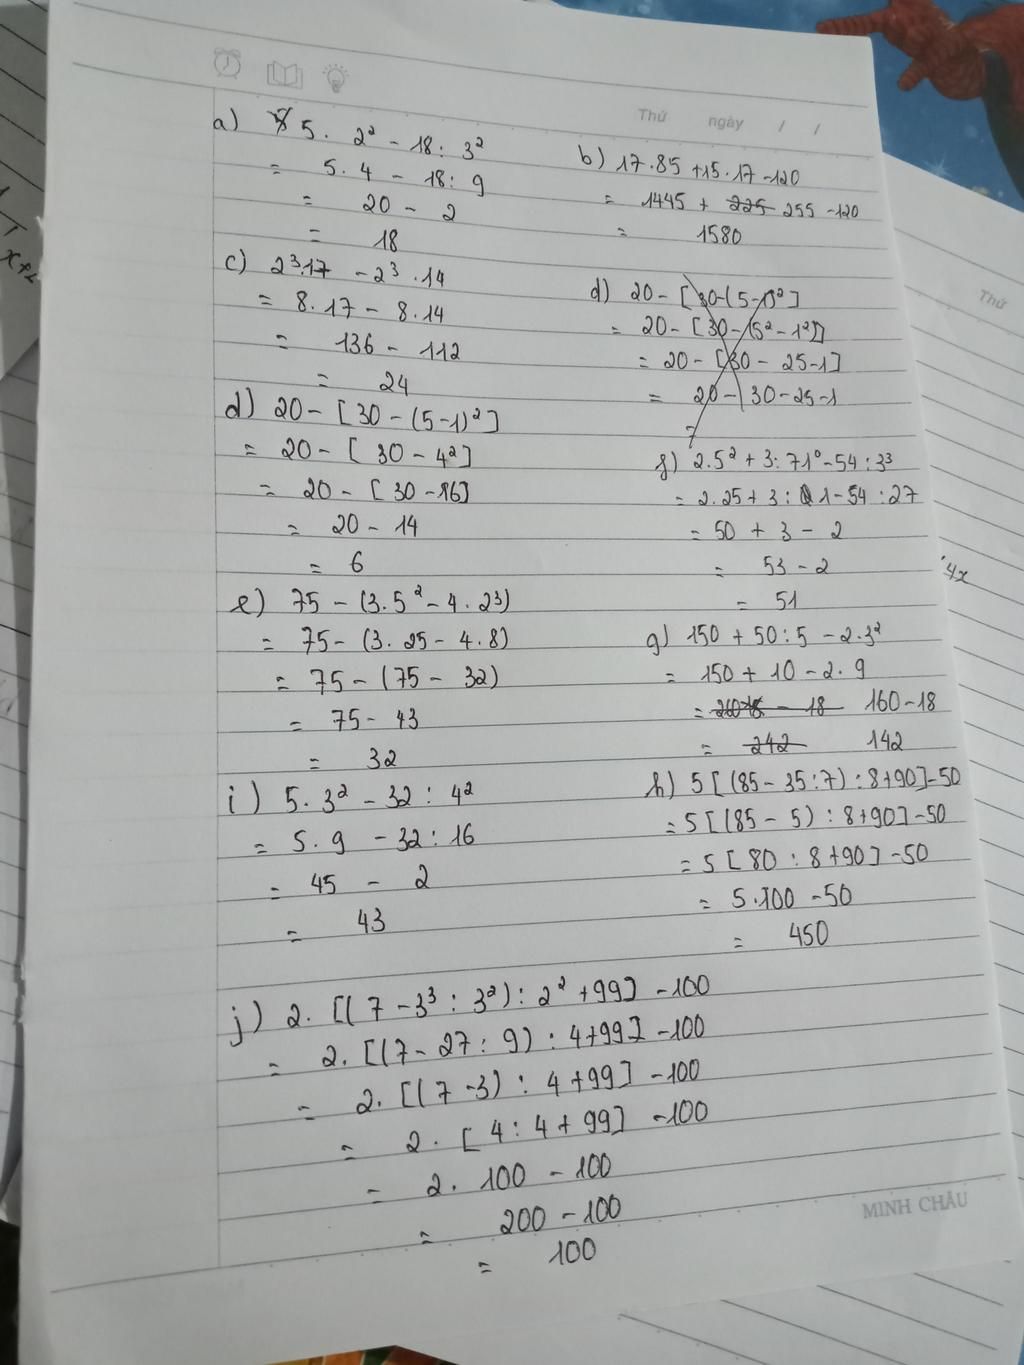 Thứ ngày / /
a) 5. 2² - 18 : 3²
= 5.4 - 18 : 9
= 20 - 2
= 18
b) 17.85 + 15.17 - 120
= 1445 + 225 255 - 120
= 1580
c) 2³.17 - 2³.14
= 8.17 - 8.14
= 136 - 112
= 24
d) 20 - [30 - (5 - 1)²]
= 20 - [30 - (5² - 1²)]
= 20 - [30 - 25 - 1]
= 20 - 30 - 25 - 1
=
d) 20 - [30 - (5 - 1)²]
= 20 - [30 - 4²]
= 20 - [30 - 16]
= 20 - 14
= 6
f) 2.5² + 3 : 71⁰ - 54 : 3³
= 2.25 + 3 : 1 - 54 : 27
= 50 + 3 - 2
= 53 - 2
= 51
e) 75 - (3.5² - 4.2³)
= 75 - (3.25 - 4.8)
= 75 - (75 - 32)
= 75 - 43
= 32
g) 150 + 50 : 5 - 2.3²
= 150 + 10 - 2.9
= - 18 160 - 18
= 242 142
i) 5.3² - 32 : 4²
= 5.9 - 32 : 16
= 45 - 2
= 43
h) 5[(85 - 35 : 7) : 8 + 90] - 50
= 5[(85 - 5) : 8 + 90] - 50
= 5[80 : 8 + 90] - 50
= 5.100 - 50
= 450
j) 2.[(7 - 3³ : 3²) : 2² + 99] - 100
= 2.[(7 - 27 : 9) : 4 + 99] - 100
= 2.[(7 - 3) : 4 + 99] - 100
= 2.[4 : 4 + 99] - 100
= 2.100 - 100
= 200 - 100
= 100
MINH CHÂU
Thứ
4x